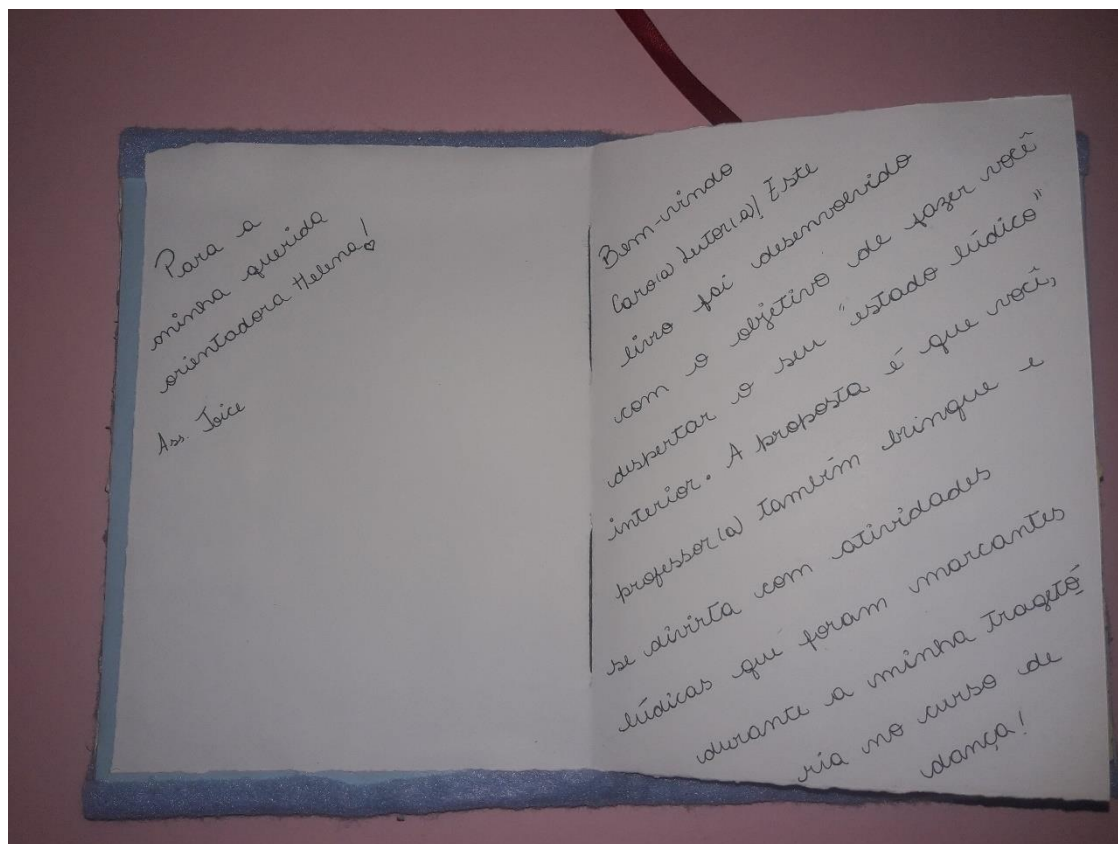 Para a
minha querida
orientadora Helena!
Ass. Joice
Bem-vindo
Caro(a) Leitor(a)! Este
livro foi desenvolvido
com o objetivo de fazer você
despertar o seu "estado lúdico"
interior. A proposta é que você,
professor(a) também brinque e
se divirta com atividades
lúdicas que foram marcantes
durante a minha tragetó
ria no curso de
dança!